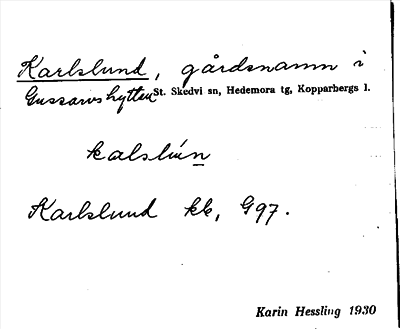 Karlslund, gårdsnamn i
Gussarvshyttan St. Skedvi sn, Hedemora tg, Kopparbergs l.
kalslún
Karlslund kb, G97.
Karin Hessling 1930